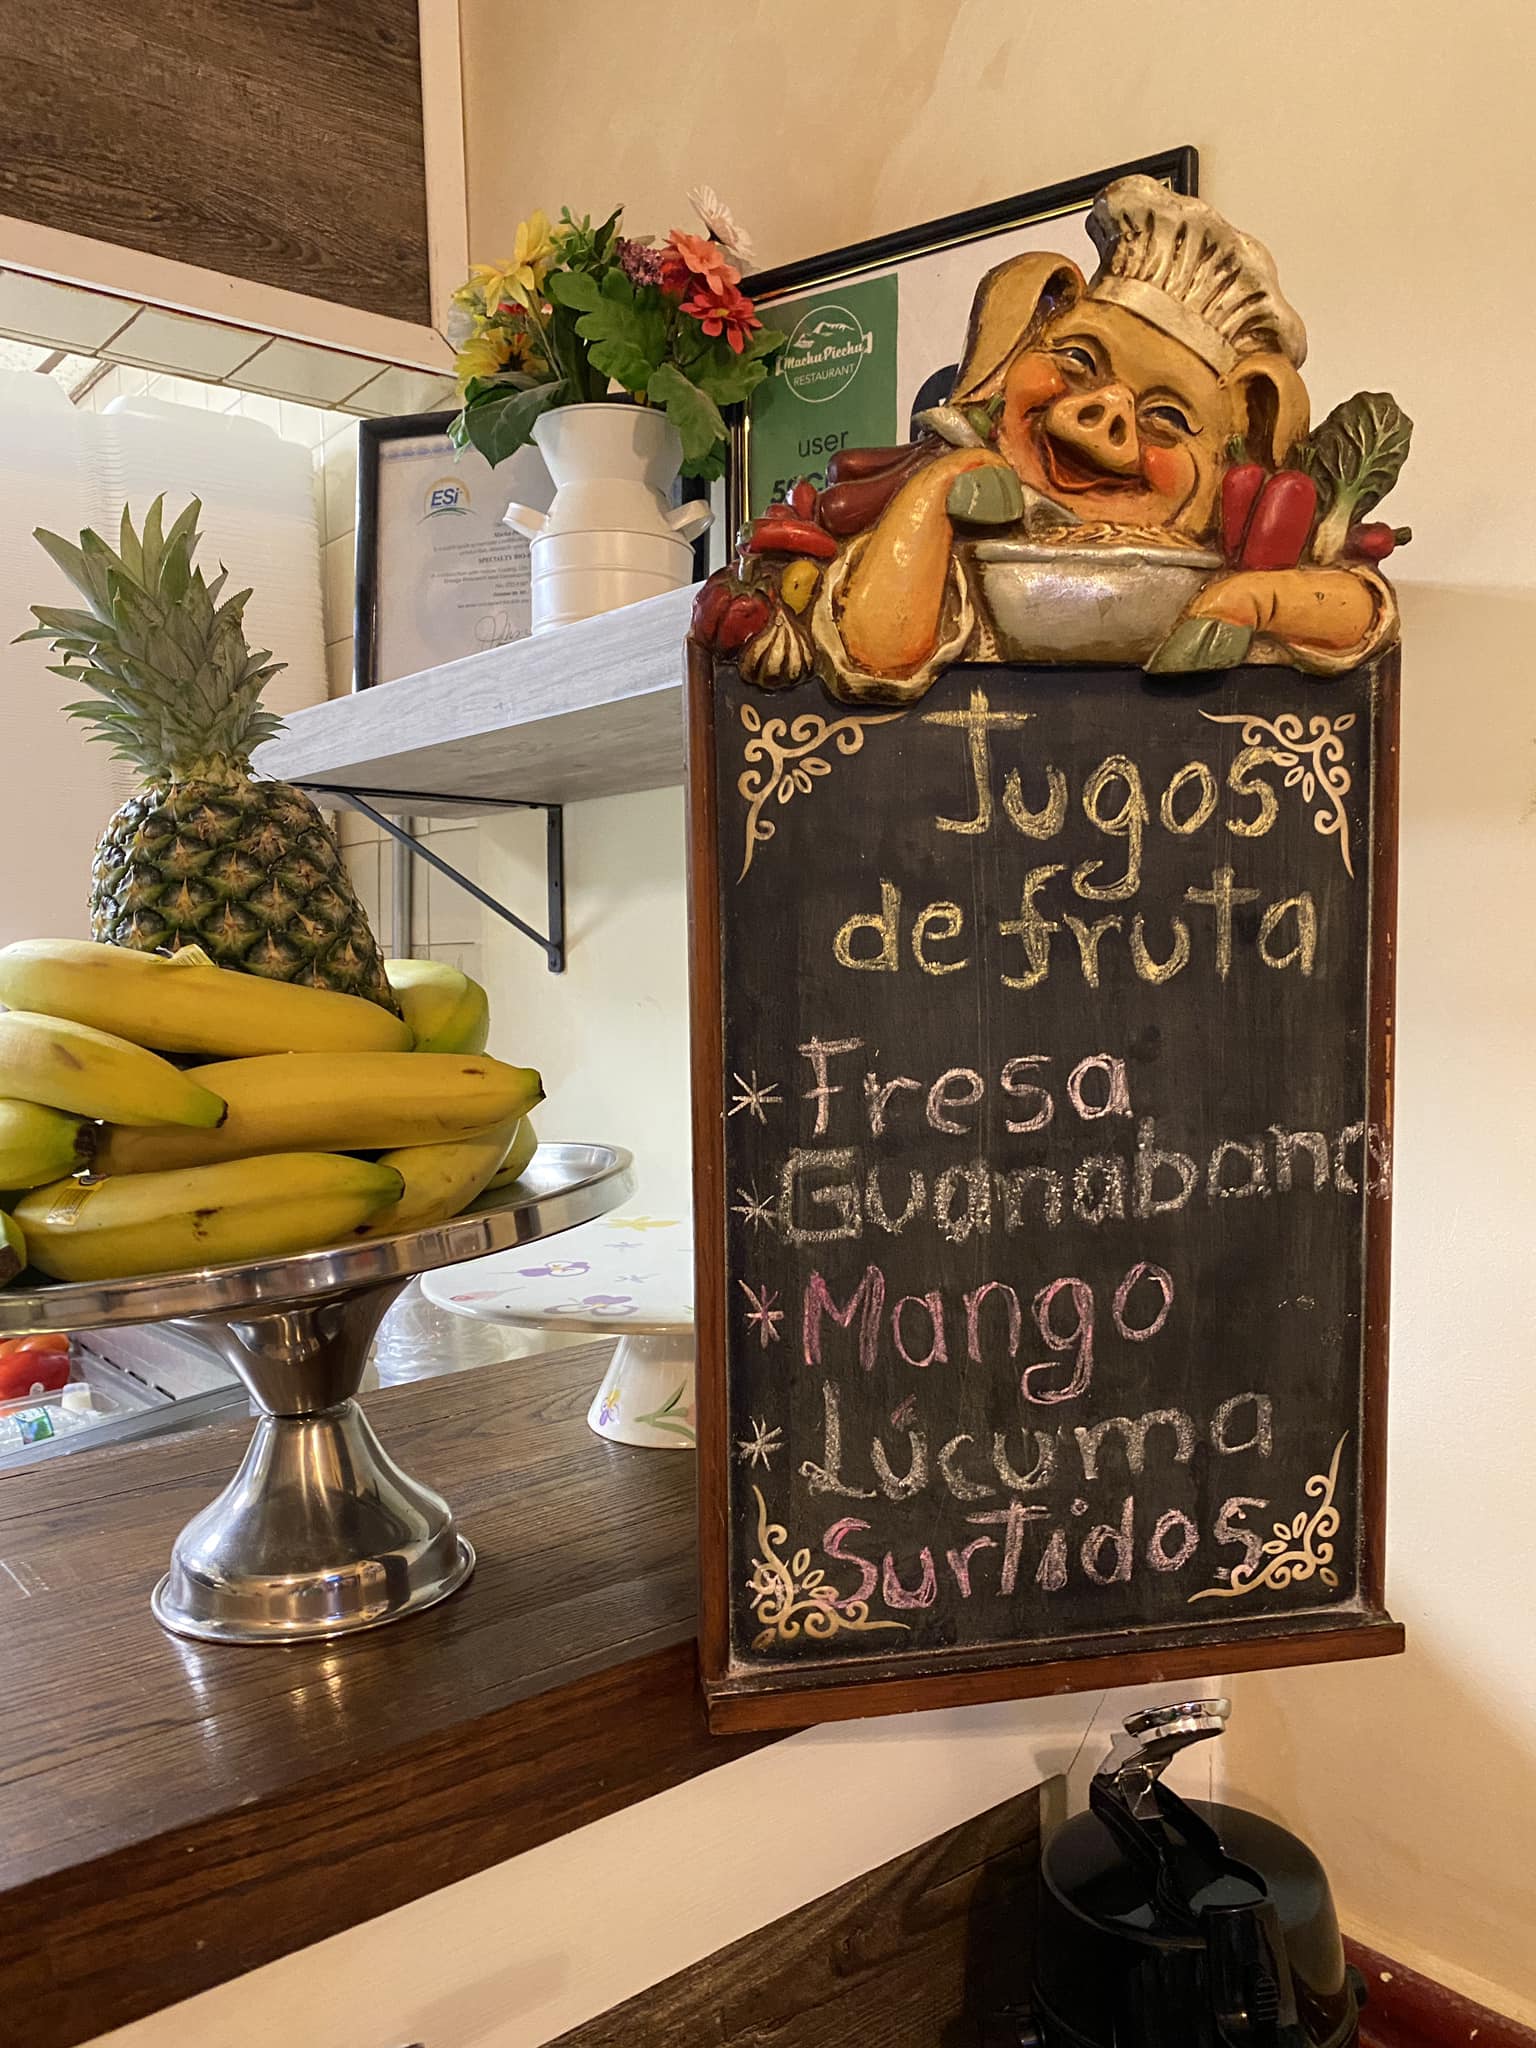 Machu Picchu
RESTAURANT
user
ESi
SPECIALTY
Jugos
de fruta
* Fresa
* Guanabana
* Mango
* Lúcuma
* Surtidos